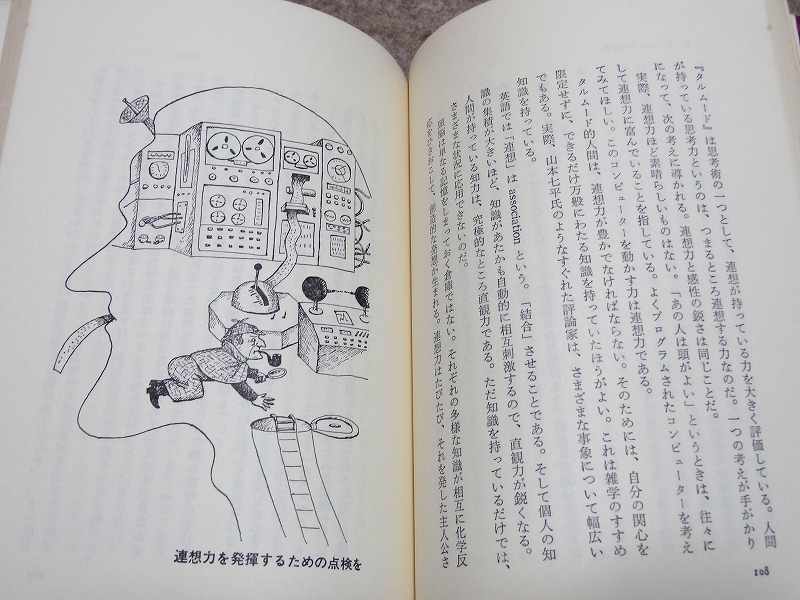 『タルムード』は思考術の一つとして、連想が持っている力を大きく評価している。人間
が持っている思考力というのは、つまるところ連想する力なのだ。一つの考えが手がかり
になって、次の考えに導かれる。連想力と感性の鋭さは同じことだ。
実際、連想力ほど素晴らしいものはない。「あの人は頭がよい」というときは、往々に
して連想力に富んでいることを指している。よくプログラムされたコンピューターを考え
てみてほしい。このコンピューターを動かす力は連想力である。
タルムード的人間は、連想力が豊かでなければならない。そのためには、自分の関心を
限定せずに、できるだけ万般にわたる知識を持っていたほうがよい。これは雑学のすすめ
でもある。実際、山本七平氏のようなすぐれた評論家は、さまざまな事象について幅広い
知識を持っている。
英語では「連想」は association という。「結合」させることである。そして個人の知
識の集積が大きいほど、知識があたかも自動的に相互刺激するので、直観力が鋭くなる。
人間が持っている知力は、究極的なところ直観力である。ただ知識を持っているだけでは、
さまざまな状況に応用できないのだ。
頭脳は単なる記憶をしまっておく倉庫ではない。それぞれの多様な知識が相互に化学反
応をひきおこして、創造的な発想が生まれる。連想力はたびたび、それを発した主人公さ
108
連想力を発揮するための点検を